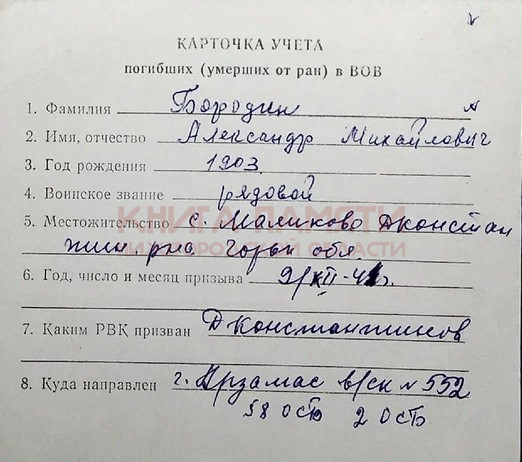 КАРТОЧКА УЧЕТА
погибших (умерших от ран) в ВОВ
1. Фамилия Бородин
2. Имя, отчество Александр Михайлович
3. Год рождения 1903
4. Воинское звание рядовой
КНИГА ПАМЯТИ
5. Местожительство с. Маликово Дконстан
НИЖЕГОРОДСКОЙ ОБЛАСТИ
тин. р-на Горьк обл
6. Год, число и месяц призыва 9/XII-41г.
7. Каким РВК призван Дконстантинов
8. Куда направлен г. Арзамас в/ск №552
58 ОСТБ 2 ОСТБ